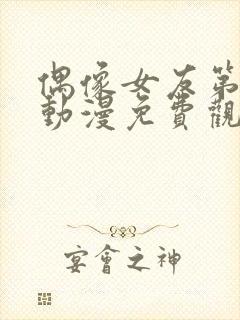 偶像女友第
動漫免費觀
宴會之神